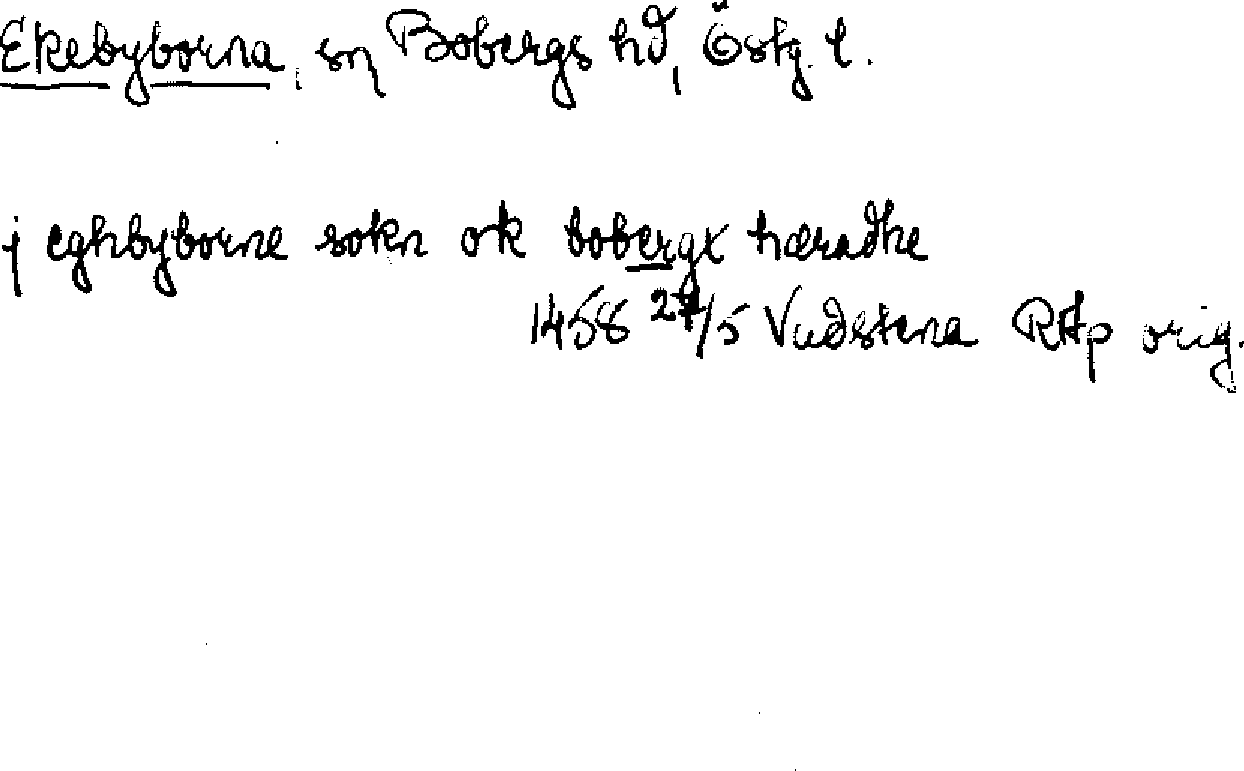 Ekebyborna, sn Bobergs hd, Östg. l.
j eghbyborne sokn ok bobergx hæradhe
1458 27/5 Vadstena RAp orig.